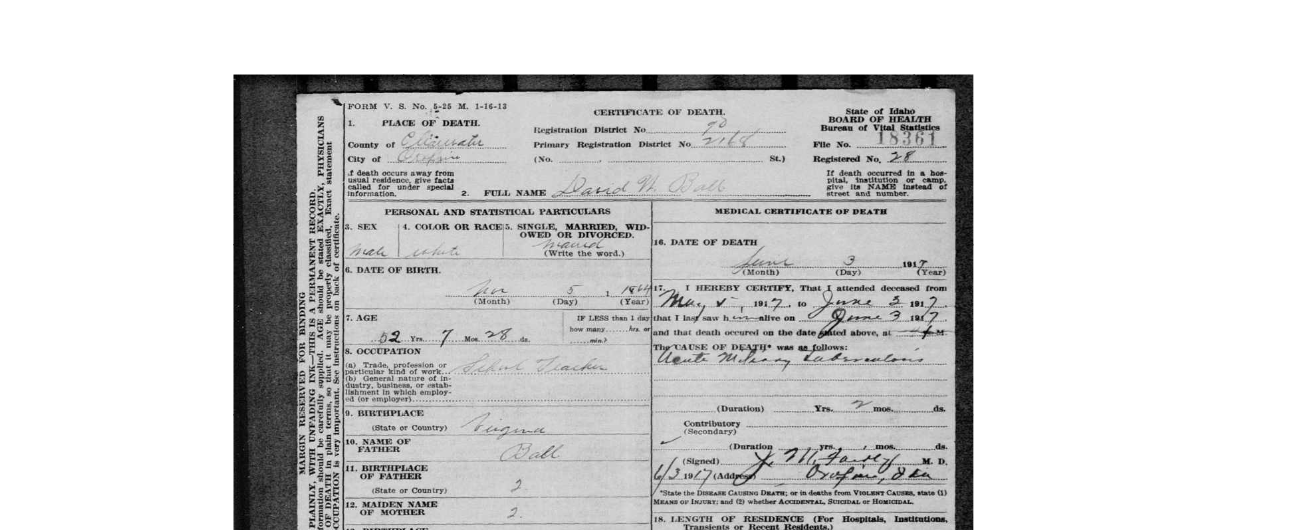 FORM V. S. No. 5-25 M. 1-16-13
CERTIFICATE OF DEATH.
State of Idaho
BOARD OF HEALTH
Bureau of Vital Statistics
File No. 18361
Registered No. 28
1. PLACE OF DEATH.
County of Clearwater
City of Orofino
Registration District No. 90
Primary Registration District No. 2168
(No. St.)
If death occurs away from
usual residence, give facts
called for under special
information.
2. FULL NAME David W. Ball
If death occurred in a hos-
pital, institution or camp,
give its NAME instead of
street and number.
MARGIN RESERVED FOR BINDING
PLAINLY, WITH UNFADING INK—THIS IS A PERMANENT RECORD.
formation should be carefully supplied. AGE should be stated EXACTLY, PHYSICIANS
OF DEATH in plain terms, so that it may be properly classified. Exact statement
OCCUPATION is very important. See instructions on back of certificate.
PERSONAL AND STATISTICAL PARTICULARS
3. SEX
Male
4. COLOR OR RACE
white
5. SINGLE, MARRIED, WID-
OWED OR DIVORCED.
married
(Write the word.)
6. DATE OF BIRTH.
Nov 5, 1864
(Month) (Day) (Year)
7. AGE
52 Yrs. 7 Mos. 28 ds.
IF LESS than 1 day
how many hrs. or
min.?
8. OCCUPATION
(a) Trade, profession or
particular kind of work School Teacher
(b) General nature of in-
dustry, business, or estab-
lishment in which employ-
ed (or employer)
9. BIRTHPLACE
(State or Country) Virginia
10. NAME OF
FATHER Ball
11. BIRTHPLACE
OF FATHER
(State or Country) ?
12. MAIDEN NAME
OF MOTHER ?
MEDICAL CERTIFICATE OF DEATH
16. DATE OF DEATH
June 3 1917
(Month) (Day) (Year)
17. I HEREBY CERTIFY, That I attended deceased from
May 5 1917, to June 3 1917
that I last saw him alive on June 3 1917
and that death occured on the date stated above, at M.
The CAUSE OF DEATH* was as follows:
Acute Miliary tuberculosis
(Duration) Yrs. 2 mos. ds.
Contributory
(Secondary)
(Duration yrs. mos. ds.
(Signed) M. D.
6/3 1917 (Address) Orofino, Ida
*State the DISEASE CAUSING DEATH; or in deaths from VIOLENT CAUSES, state (1)
MEANS OF INJURY; and (2) whether ACCIDENTAL, SUICIDAL or HOMICIDAL.
18. LENGTH OF RESIDENCE (For Hospitals, Institutions,
Transients or Recent Residents.)